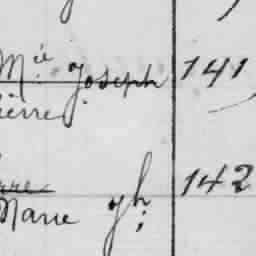 Mie Joseph 141
ierre
142
Marie gh;